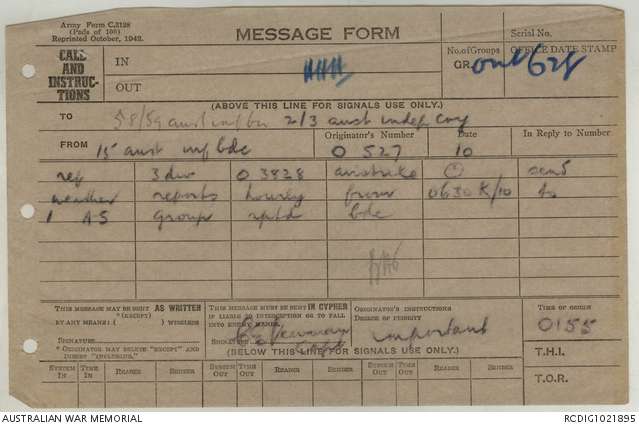 Army Form C.2128
(Pads of 100)
Reprinted October, 1942.
MESSAGE FORM
Serial No.
CALL AND INSTRUCTIONS
IN
OUT
No. of Groups
GR.
OFFICE DATE STAMP
out 628
(ABOVE THIS LINE FOR SIGNALS USE ONLY.)
TO 58/59 aust inf bn 2/3 aust indep coy
FROM 15 aust inf bde
Originator's Number
0527
Date
10
In Reply to Number
ref 3 div O 3828 airstrike (.) send
weather reports hourly from 0630 K/10 to
1 AS group rptd bde
THIS MESSAGE MAY BE SENT AS WRITTEN
*(EXCEPT)
BY ANY MEANS: ( ) WIRELESS
SIGNATURE
* ORIGINATOR MAY DELETE "EXCEPT" AND INSERT "INCLUDING."
THIS MESSAGE MUST BE SENT IN CYPHER
IF LIABLE TO INTERCEPTION OR TO FALL INTO ENEMY HANDS.
SIGNATURE
ORIGINATOR'S INSTRUCTIONS
DEGREE OF PRIORITY
important
TIME OF ORIGIN
0155
(BELOW THIS LINE FOR SIGNALS USE ONLY.)
T.H.I.
SYSTEM IN TIME IN READER SENDER SYSTEM OUT TIME OUT READER SENDER SYSTEM OUT TIME OUT READER SENDER
T.O.R.
AUSTRALIAN WAR MEMORIAL
RCDIG1021895